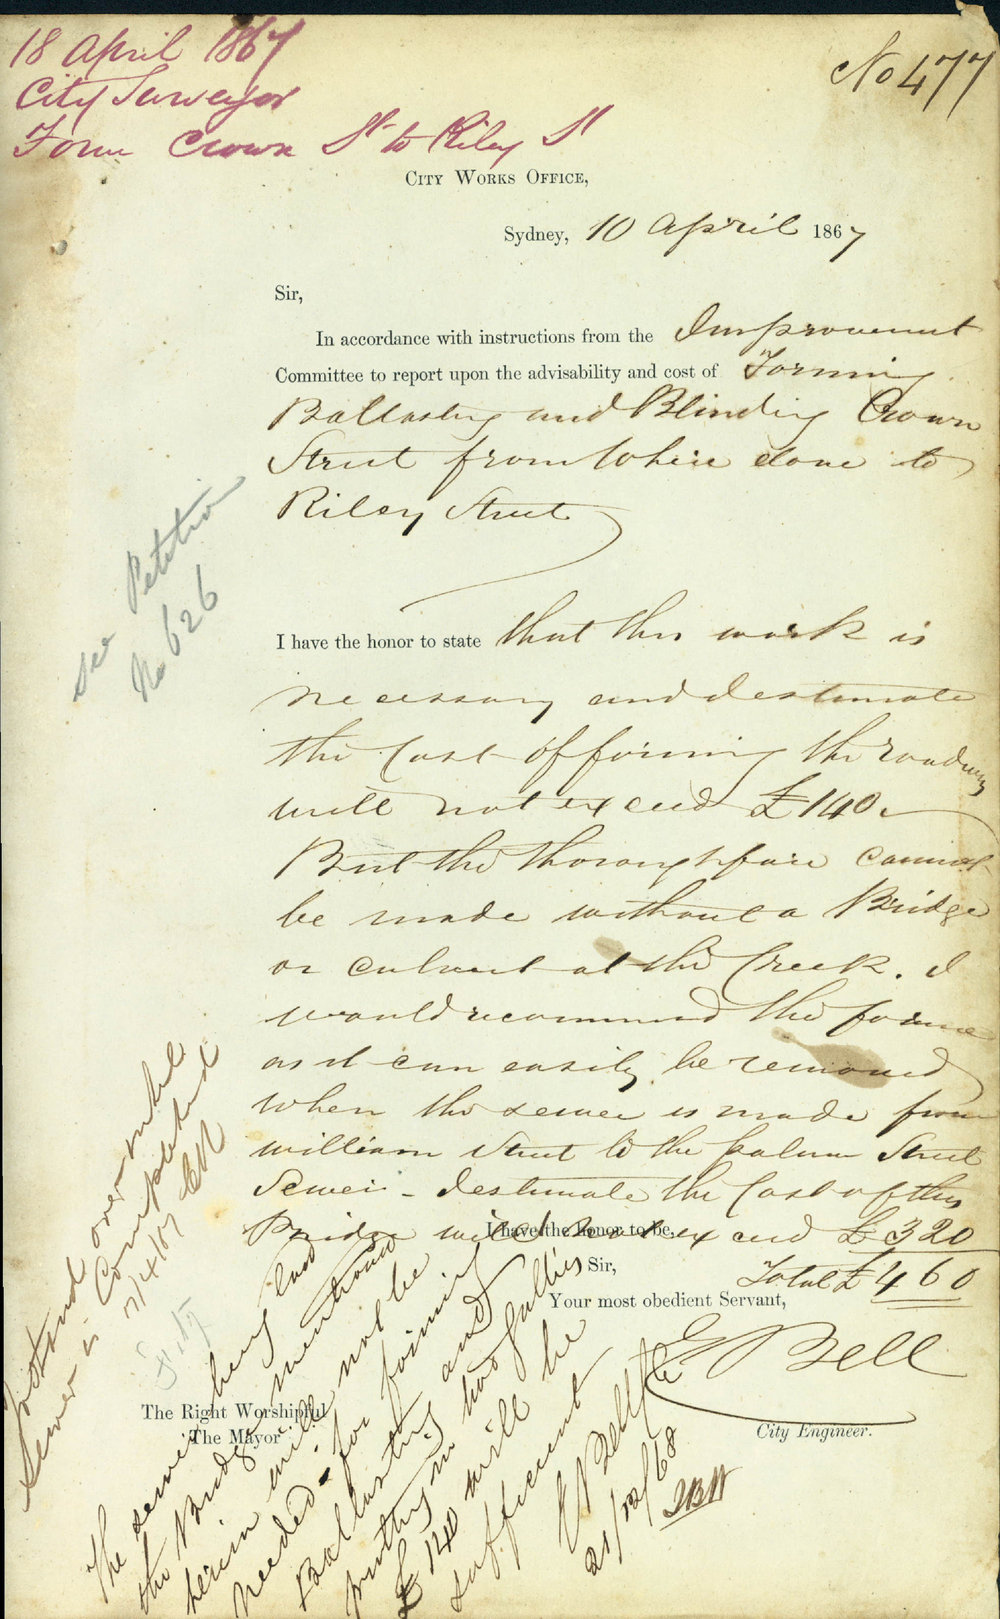 18 April 1867
City Surveyor
Form Crown St to Riley St
No 477
City Works Office,
Sydney, 10 April 1867
Sir,
In accordance with instructions from the Improvement
Committee to report upon the advisability and cost of Forming
Ballasting and Blinding Crown
Street from where done to
Riley Street
See Petition
No 626
I have the honor to state that this work is
necessary and I estimate
the Cost of forming the roadway
will not exceed £140
But the thoroughfare cannot
be made without a Bridge
or culvert at the Creek. I
would recommend the former
as it can easily be removed
when the sewer is made from
William Street to the Palmer Street
Sewer - I estimate the Cost of this
Bridge will not exceed £320
I have the honor to be,
Sir,
Total £460
Your most obedient Servant,
E Bell
City Engineer.
The Right Worshipful
The Mayor
to stand over until
Sewer is Completed
The sewer being laid
the Bridge mentioned
herein will not be
needed. for forming
Ballasting and
putting in two gullies
£140 will be
sufficient
E Bell
21/12/68